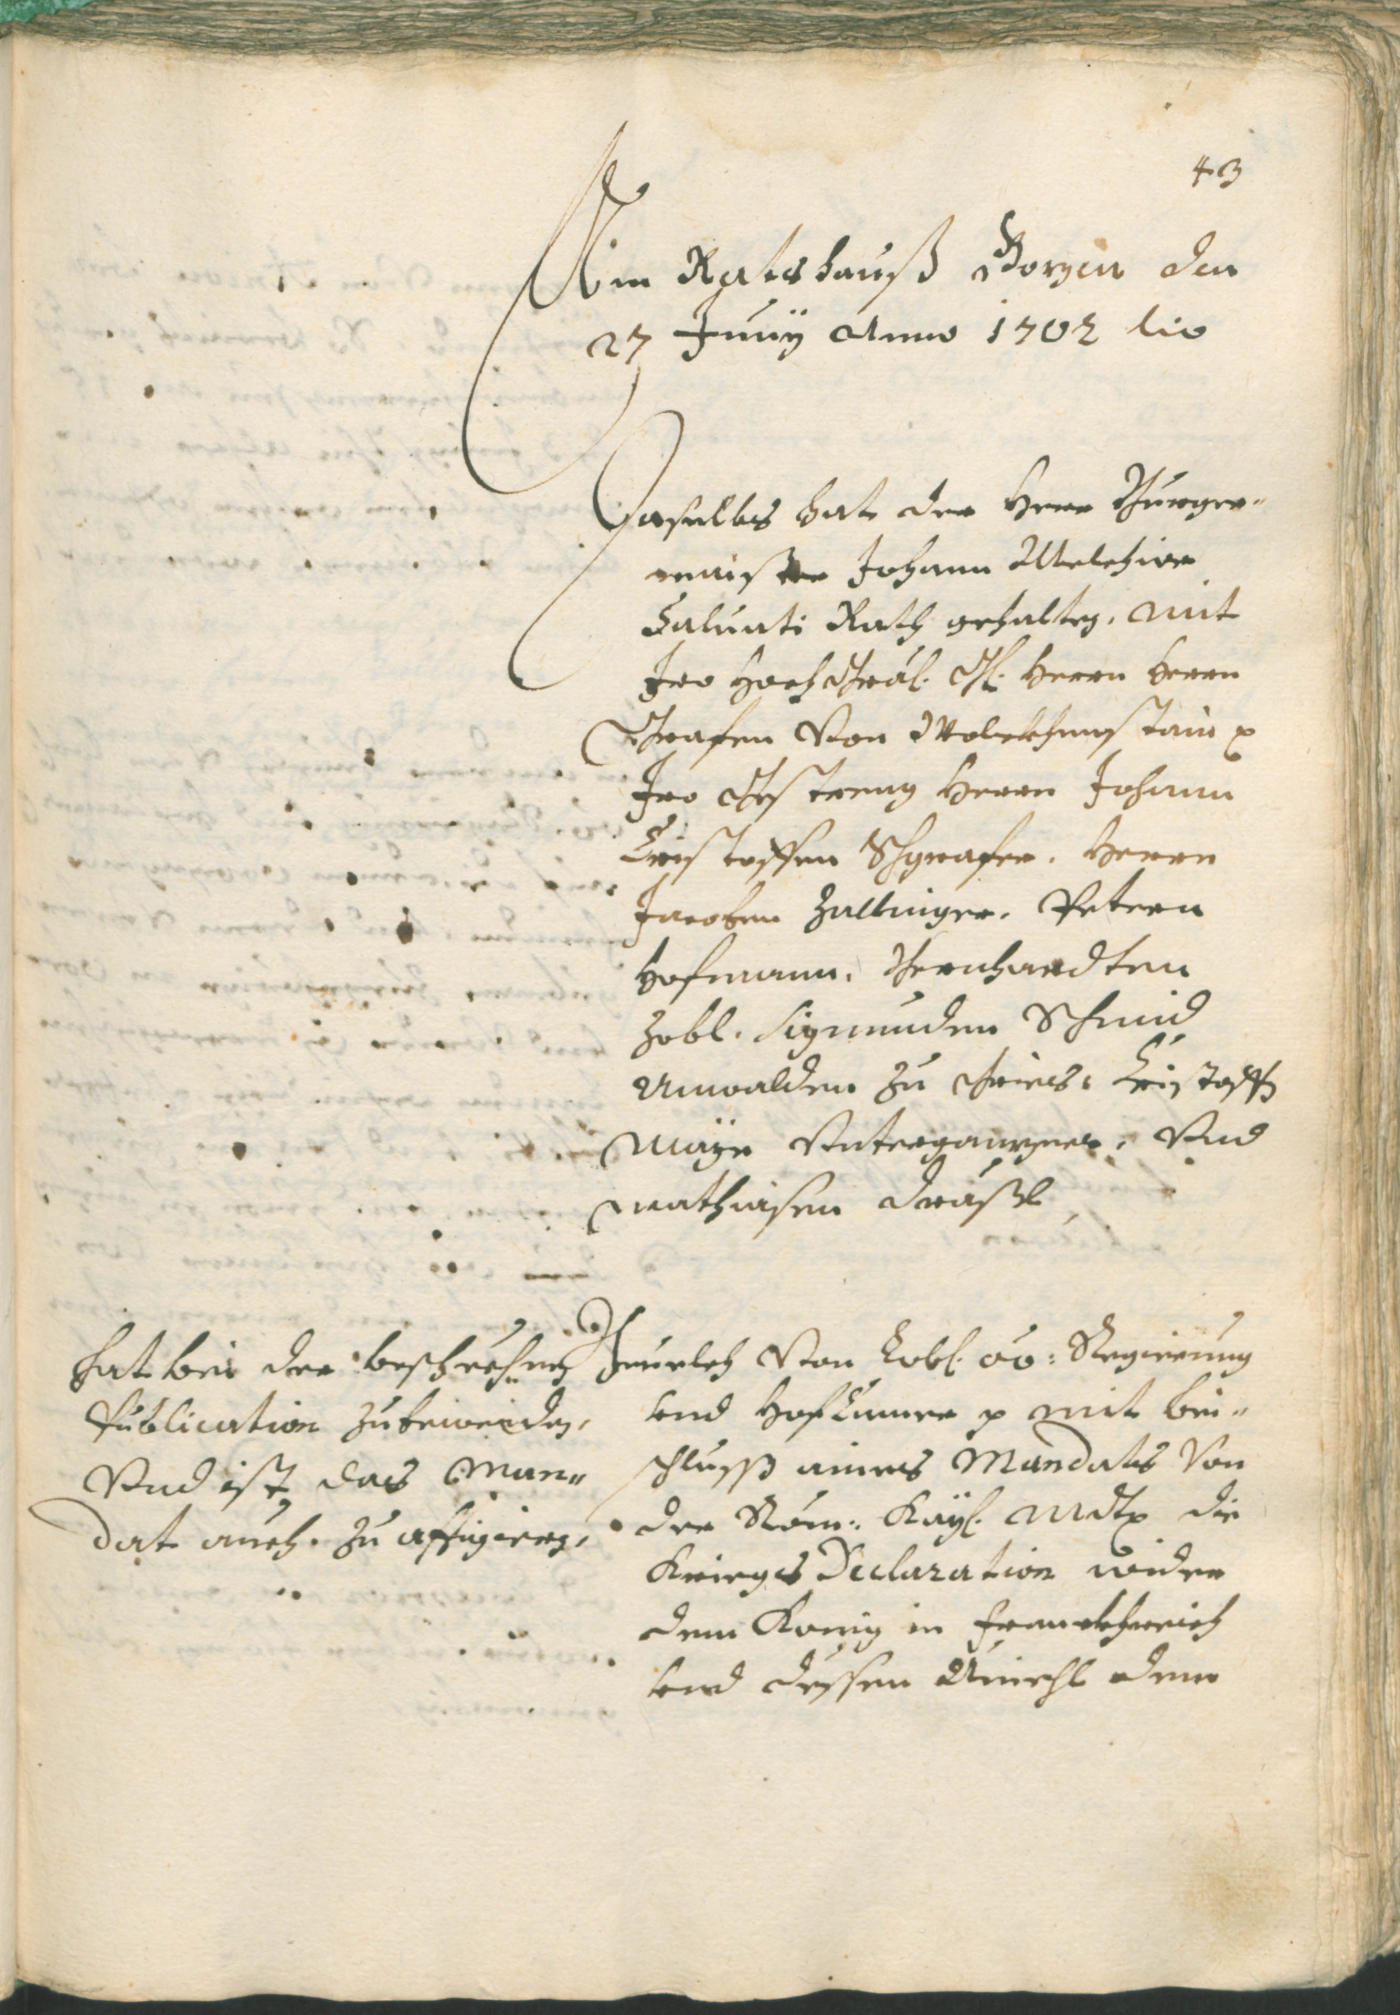 43
Am Ratshauß Bozen den
27 Junÿ Anno 1702
Daselbs hat der Herr Burger-
maister Johann Melchior
Saluati Rath gehalten, mit
Iro Hochgräfl. Gl. Herrn Herrn
Grafen Von Wolckhenstain p
Iro Gestreng Herrn Johann
Cristoffen Schgrafer, Herrn
Jacoben Zallinger, Petern
Hofmann, Bernhardten
Zobl, Sigmunden Schmid
Anwalden zu Gries, Cristoff
Mayr Undterganzner, Vnd
Mathiasen Dräxl
Hat bei der beschechnen
Publication zubewenden,
Vnd ist das Man-
dat auch zu affigiern,
Beuelch Von Lobl. oö: Regierung
vnd Hof Camer p mit bei-
schluss aines Mandats Von
der Röm: Kaÿl. Mdt p die
Kriegs Declaration wider
dem König in Franckhreich
vnd dessen Enickhl dem